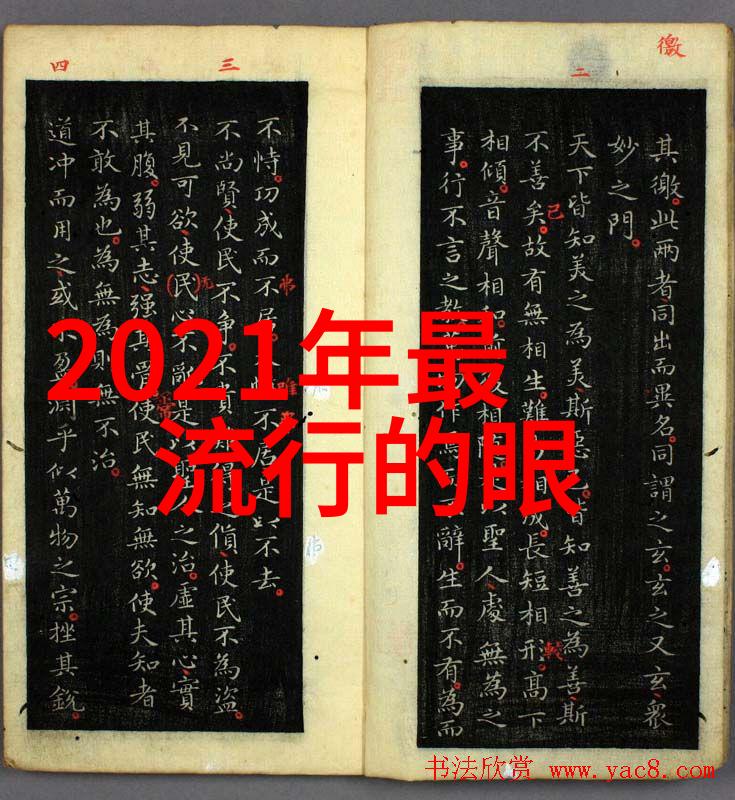 2021年最
流行的眼
徼
二
其徼。此两者、同出而異名。同謂之玄。玄之又玄、衆
妙之門。
天下皆知美之為美、斯惡 皆知善之為善斯
不善矣。故有無相生、難 相成。長短相形。高下
相傾。音聲相和。 相 聖人處無為之
事。行不言之教。 作 辭。生而不有。為而
已
較
三
四
不恃。功成而不居。 不居是以不去。
不尚賢、使民不争。不貴 得 貨、使民不為盜。
不見可欲、使(民)心不亂。是以聖人之治。虛其心、實
其腹。弱其志、强其骨。使民無知無欲。使夫知者
不敢為也。為無為、則無不治。
道冲而用之、或不盈。淵乎似萬物之宗。挫其銳。
唯
无
常
书法欣赏 www.yac8.com